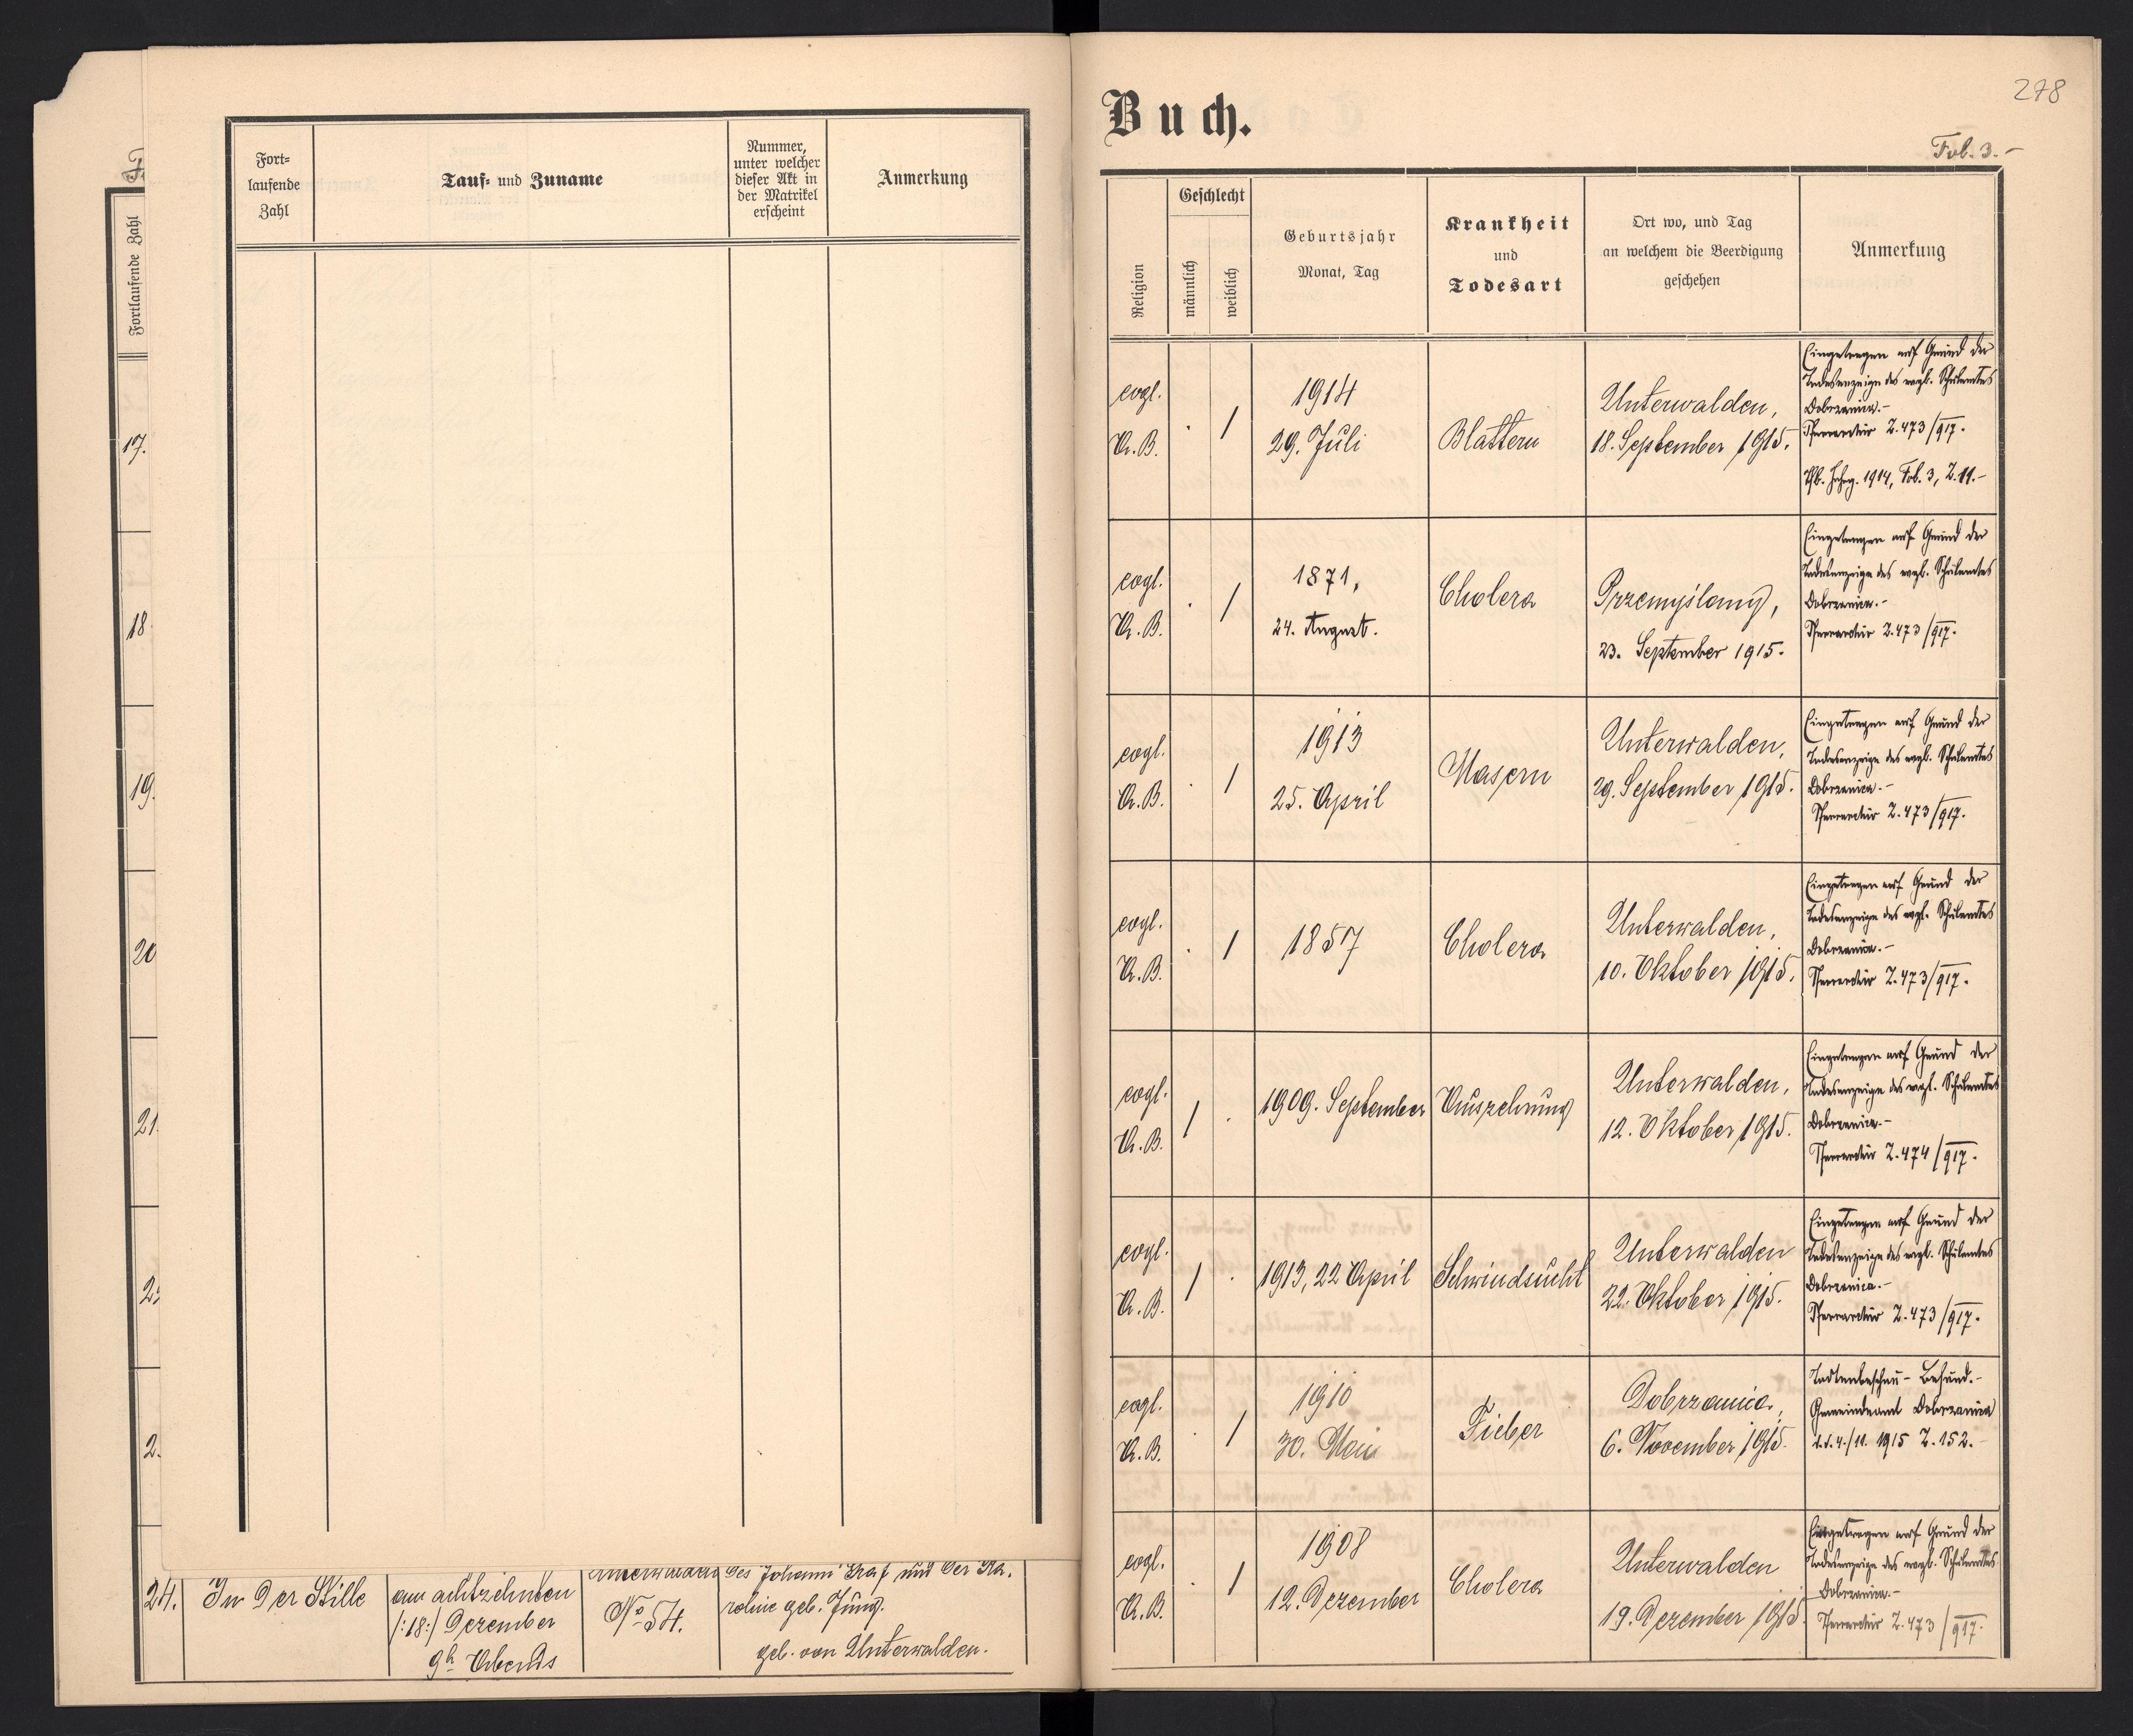 Fortlaufende Zahl
17.
18
19.
20
21.
2
2.
Fort-
laufende
Zahl
Tauf- und Zuname
Nummer,
unter welcher
dieser Akt in
der Matrikel
erscheint
Anmerkung
24.
In der Stille
am achtzehnten
/:18:/ Dezember
9h Abends
Unterwalden
No 54.
des Johann Graf und der Ka-
roline geb. Jung.
geb. von Unterwalden.
278
Buch.
Fol. 3.-
Religion
Geschlecht
männlich
weiblich
Geburtsjahr
Monat, Tag
Krankheit
und
Todesart
Ort wo, und Tag
an welchem die Beerdigung
geschehen
Anmerkung
evgl.
A.B.
. /
1914
29. Juli
Blattern
Unterwalden,
18. September 1915.
Eingetragen auf Grund der
Todesanzeige des evgl. Schulamtes
Dobrzanica.-
Pfarrarchiv Z. 473/917.
Jahrg. 1914, Fol. 3, Z. 11.-
evgl.
A.B.
. /
1871,
24. August.
Cholera
Przemyślany,
23. September 1915.
Eingetragen auf Grund der
Todesanzeige des evgl. Schulamtes
Dobrzanica.-
Pfarrarchiv Z. 473/917.
evgl.
A.B.
. /
1913
25. April
Masern
Unterwalden,
29. September 1915.
Eingetragen auf Grund der
Todesanzeige des evgl. Schulamtes
Dobrzanica.-
Pfarrarchiv Z. 473/917.
evgl.
A.B.
. /
1857
Cholera
Unterwalden,
10. Oktober 1915.
Eingetragen auf Grund der
Todesanzeige des evgl. Schulamtes
Dobrzanica.-
Pfarrarchiv Z. 473/917.
evgl.
A.B.
/ .
1909. September
Auszehrung
Unterwalden,
12. Oktober 1915.
Eingetragen auf Grund der
Todesanzeige des evgl. Schulamtes
Dobrzanica.-
Pfarrarchiv Z. 474/917.
evgl.
A.B.
/ .
1913, 22 April
Schwindsucht
Unterwalden
22. Oktober 1915.
Eingetragen auf Grund der
Todesanzeige des evgl. Schulamtes
Dobrzanica.-
Pfarrarchiv Z. 473/917.
evgl.
A.B.
. /
1910
30. Mai
Fieber
Dobrzanica,
6. November 1915.
Todtenbeschau-Befund.-
Gemeindeamt Dobrzanica
d.d. 4./11. 1915 Z. 152.-
evgl.
A.B.
. /
1908
12. Dezember
Cholera
Unterwalden
19. Dezember 1915.
Eingetragen auf Grund der
Todesanzeige des evgl. Schulamtes
Dobrzanica.-
Pfarrarchiv Z. 473/917.